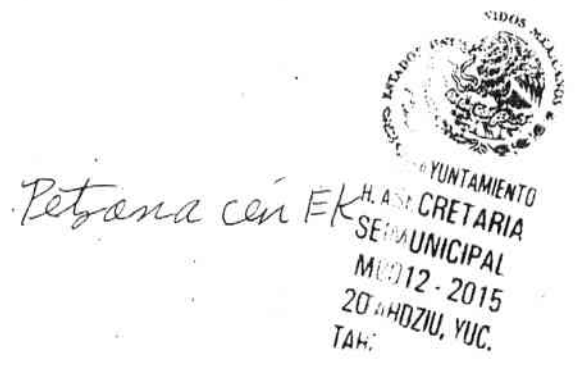 ESTADOS UNIDOS MEXICANOS
Petrona cen EK
H. AYUNTAMIENTO
SECRETARIA
MUNICIPAL
2012 - 2015
TAHDZIU, YUC.